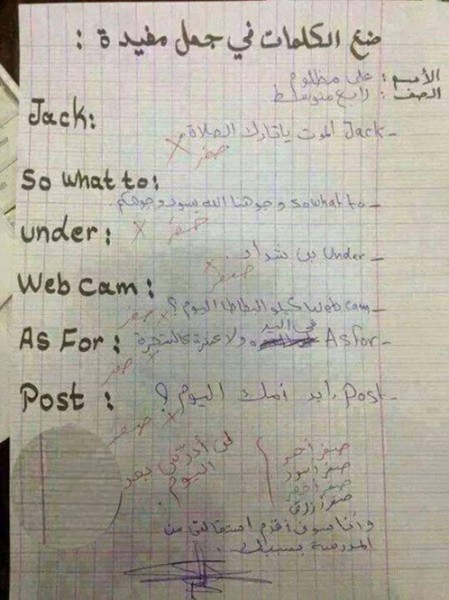 ضع الكلمات في جمل مفيدة :
الأسم : علي مظلوم
الصف : رابع متوسط
Jack:
Jack الموت ياتارك الصلاة -
صفر
So what to:
so what to وجوهنا الله يسود وجوهكم -
صفر
under:
under بن شداد . -
صفر
Web Cam:
Web cam كيلو البطاطا اليوم ؟ -
صفر
As For:
As for في اليد ولا عشرة عالشجرة -
صفر
Post:
Post ايد أمك اليوم ؟ -
صفر
صفر أحمر
صفر أسود
صفر أخضر
صفر أزرق
لن أدرّس بعد
اليوم
وأنا سوف أقدم استقالتي من
المدرسة بسببك .